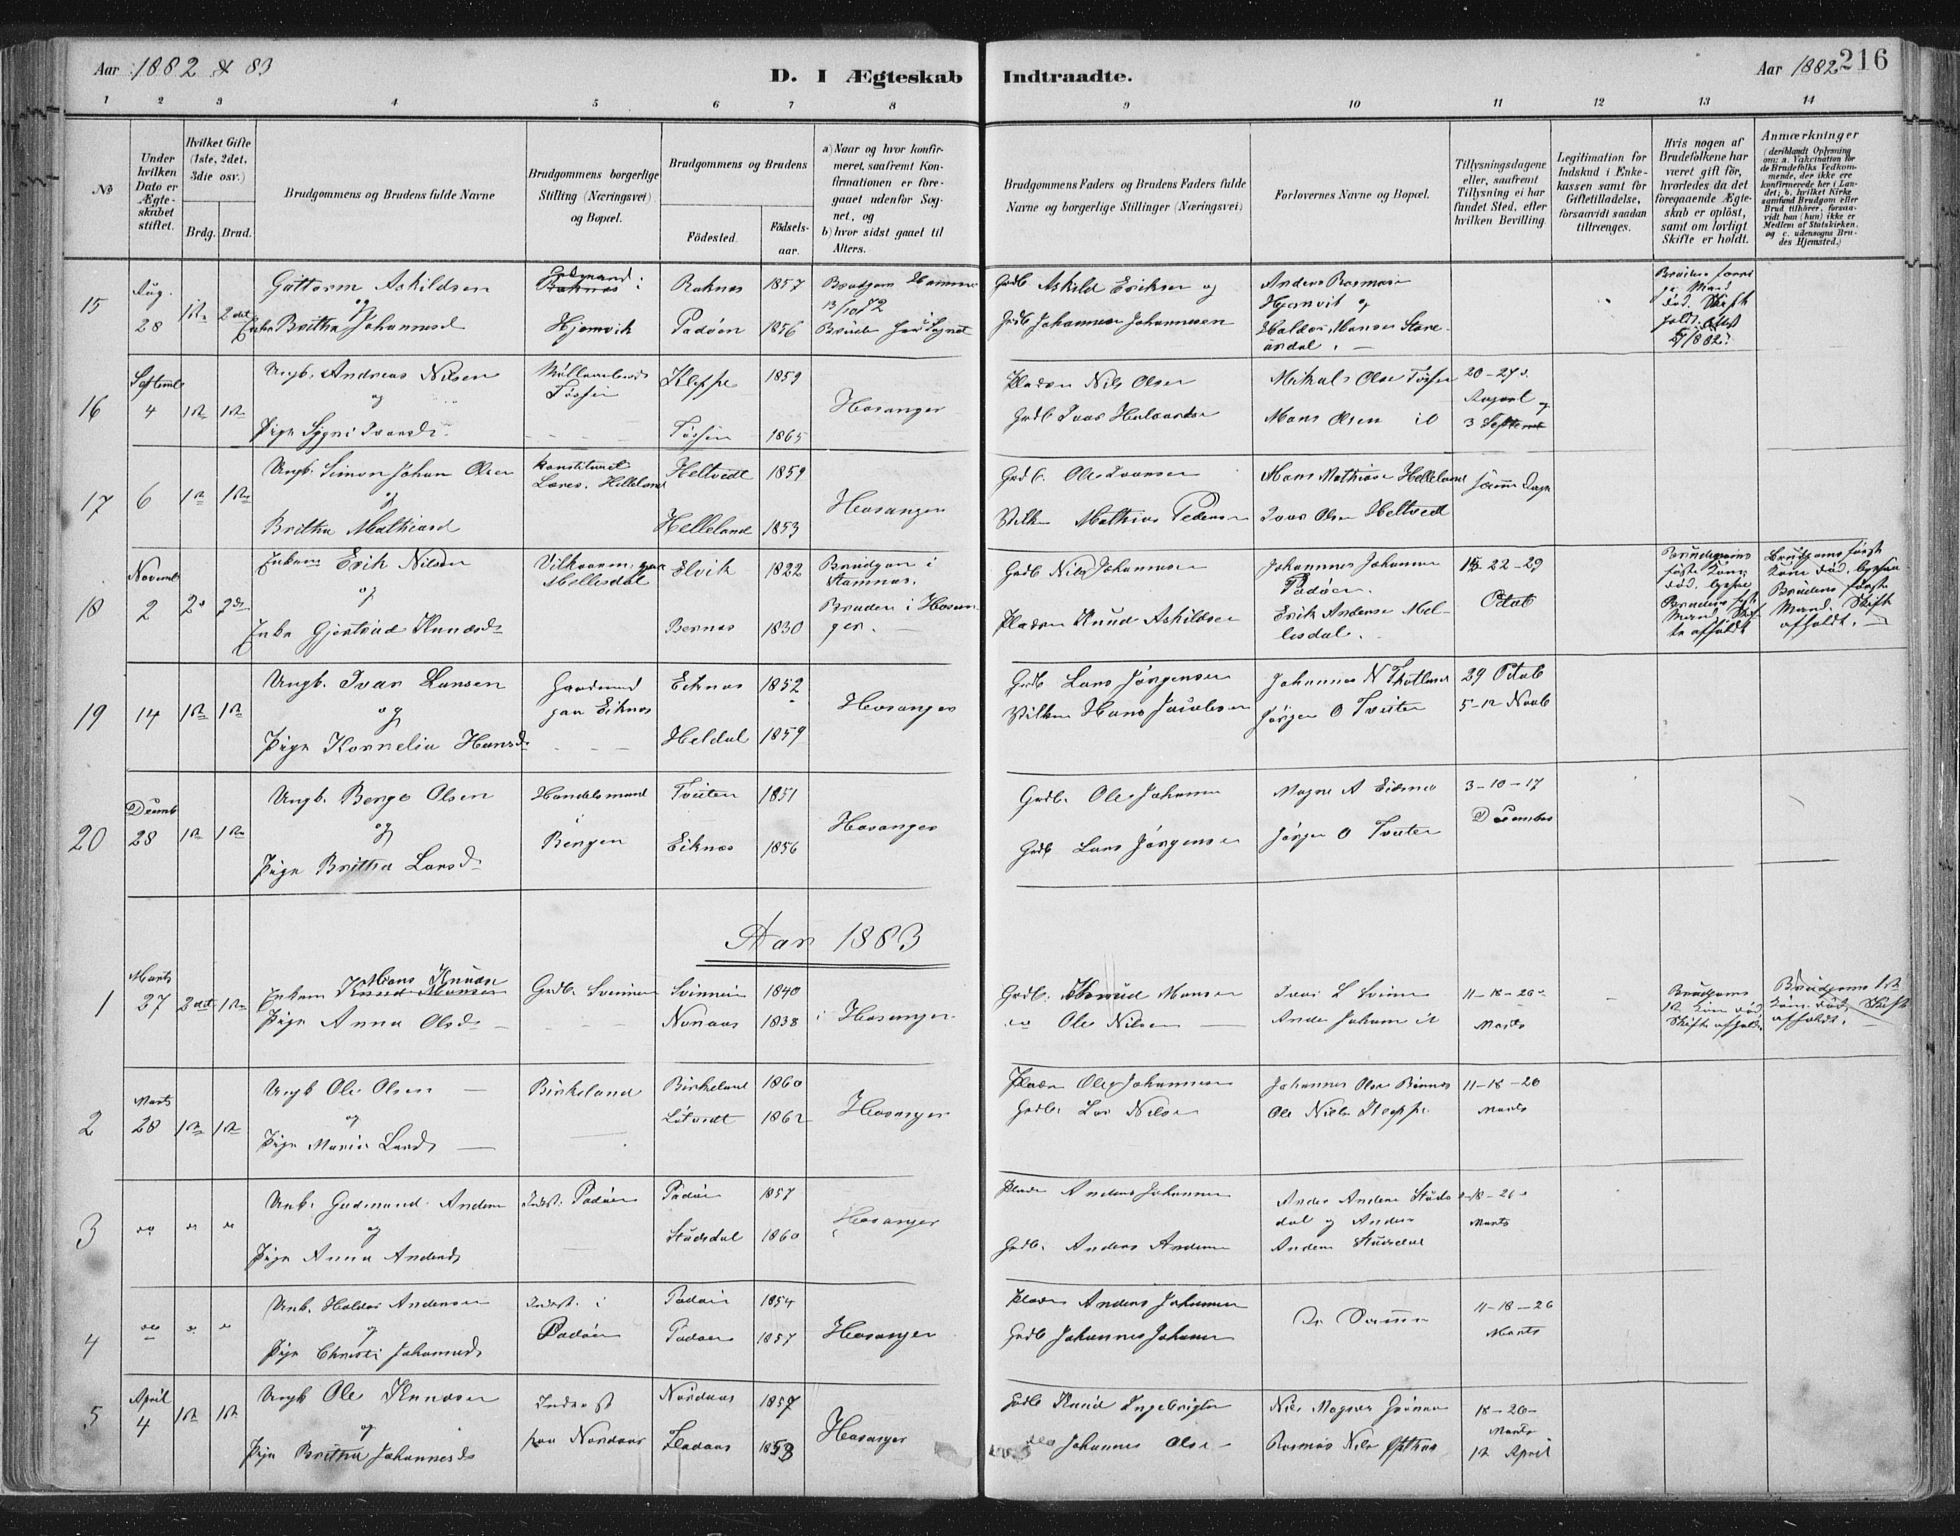 Aar 1882 & 83
D. I Ægteskab Indtraadte.
Aar 1882
216
1 2 3 4 5 6 7 8 9 10 11 12 13 14
No
Under hvilken Dato er Ægteskabet stiftet.
Hvilket Gifte (1ste, 2det, 3die osv.)
Brdg. Brud.
Brudgommens og Brudens fulde Navne
Brudgommens borgerlige Stilling (Næringsvei) og Bopæl.
Brudgommens og Brudens
Fødested.
Fødselsaar.
a) Naar og hvor konfirmeret, saafremt Konfirmationen er foregaaet udenfor Sognet, og
b) hvor sidst gaaet til Alters.
Brudgommens Faders og Brudens Faders fulde Navne og borgerlige Stillinger (Næringsvei)
Forlovernes Navne og Bopæl.
Tillysningsdagene eller, saafremt Tillysning ei har fundet Sted, efter hvilken Bevilling.
Legitimation for Indskud i Enkekassen samt for Giftetilladelse, forsaavidt saadan tiltrænges.
Hvis nogen af Brudefolkene har været gift før, hvorledes da det foregaaende Ægteskab er opløst, samt om lovligt Skifte er holdt.
Anmærkninger
(deriblandt Oplysning om: a. Vakcination for de Brudefolks Vedkommende, der ikke ere konfirmerede her i Landet; b. hvilket Kirkesamfund Brudgom eller Brud tilhører, forsaavidt han (hun) ikke er Medlem af Statskirken, og c. udensogns Brudes Hjemsted.)
15 Aug. 28 1ste 2det
Guttorm Askildsen
og
Enke Britha Johannesd
Hjemvik
Raknes 1857
Padøen 1856
Brudgom Hammer
13/10 72
Grdb Askild Eriksen og
Grdb Johannes Johannesen
Anders Rasmusen
Hjemvik og
16 Septemb 4 1ste 1ste
Ungb. Andreas Nilsen
og
Pige Sygni Ivarsd.
Fossen
Kleppe 1859
Fossen 1865
Hosanger
Pladsm Nils Olsen
Grdb Ivar Halvorsen
Mikal Olsen Fossen
Mons Olsen ib
20-27 August og
3 Septemb
17 6 1ste 1ste
Ungb. Simon Johan Olsen
og
Britha Mathiasd
Konstitueret
Lærer. Helleland
Heltvedt 1859
Helleland 1853
Hosanger
Grdb. Ole Ivarsen
Vilkm Mathias Pedersen
Mons Mathiasen Helleland
Ivar Olsen Heltvedt
samme Dage
18 Novemb 2 2 2det
Enkem Erik Nilsen
og
Enke Gjertrud Knudsd
Vilkaarm. paa
Mellesdal
Elvik 1822
Bernes 1830
Brudgom i
Hamnes.
Bruden i Hosanger.
Grdb Nils Johannesen
Pladsm Knud Askildsen
Johannes Johannesen
Padøen.
Erik Andersen Mellesdal.
15-22-29
Octob
Brudgoms første
Kone død.
Brudens første
Mand. Skifte
afholdt.
19 14 1ste 1ste
Ungb. Ivar Larsen
og
Pige Kornelia Hansd
Gaardmand
paa Eiknes
Eiknes 1852
Heldal 1859
Hosanger
Grdb Lars Jørgensen
Vilkm Hans Jacobsen
Johannes N Thotland
Jørgen O Tveiten
29 Octob
5-12 Novb
20 Decemb 28 1ste 1ste
Ungb. Berge Olsen
og
Pige Britha Larsd
Handelsmand
i
Bergen
Tveiten 1851
Eiknes 1856
Hosanger
Grdb. Ole Johannesen
Grdb Lars Jørgensen
Magne A Eiknes
Jørgen O Tveiten
3-10-17
December
Aar 1883
1 Marts 27 2det 1ste
Enkem Mons Knudsen
Pige Anna Olsd
Grdb. Svennen
Svinnen 1840
Nonaas 1838
i Hosanger
Grdb. Knud Monsen
do Ole Nilsen
Ivar L Svinnen
Anders Johannesen ib
11-18-26
Marts
Brudgoms
1ste Kone død
Skifte afholdt
Brudgoms 1ste
Kone død, Skifte
afholdt.
2 Marts 28 1ste 1ste
Ungb Ole Olsen
og
Pige Marie Larsd
Birkeland
Birkeland 1860
Litvedt 1862
Hosanger
Pladsm Ole Johannesen
Grdb. Lars Nilsen
Johannes Olsen Bernes
Ole Nielsen Kleppe
11-18-26
Marts
3 do
Unb. Gudmund Andersen
og
Pige Anna Andersd
Inderst. Padøen
Padøen 1857
Studsdal 1860
Hosanger
Pladsm Anders Johannesen
Grdb. Anders Andersen
Anders Andersen Studsdal og Anders
Andersen Studsdal
11-18-26
Marts
4 do
Unb. Haldor Andersen
og
Pige Christi Johannesd
Inderst. i
Padøen
Padøen 1854
Padøen 1857
Hosanger
Pladsm Anders Johannesen
Grdb Johannes Johannesen
De Samme
11-18-26
Marts
5 April 4 1ste 1ste
Ungb Ole Knudsen
og
Pige Britha Johannesd
Inderst
paa Nordaas
Nordaas 1857
Fladaas 1858
Hosanger
Gdb Knud Ingebrigtsen
do Johannes Olsen
Nils Magnesen
Rasmus Nilsen
18-26-
Marts
1ste April